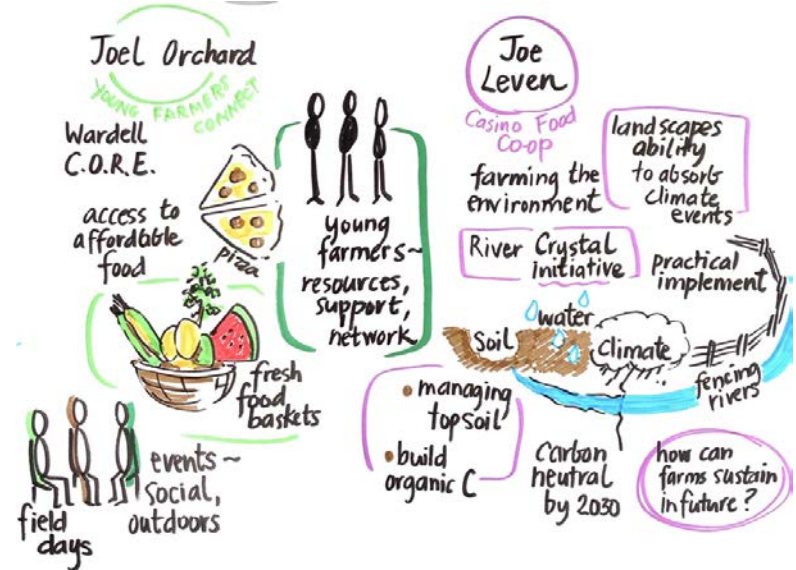 Joel Orchard
YOUNG FARMERS
CONNECT
Wardell
C.O.R.E.
access to
affordable
food
pizza
young
farmers~
resources,
support,
network
fresh
food
baskets
events~
social,
outdoors
field
days
Joe
Leven
Casino Food
Co-op
farming the
environment
landscapes
ability
to absorb
climate
events
River Crystal
initiative
Practical
implement
Soil
water
Climate
fencing
rivers
• managing
topsoil
• build
organic C
Carbon
neutral
by 2030
how can
farms sustain
in future?